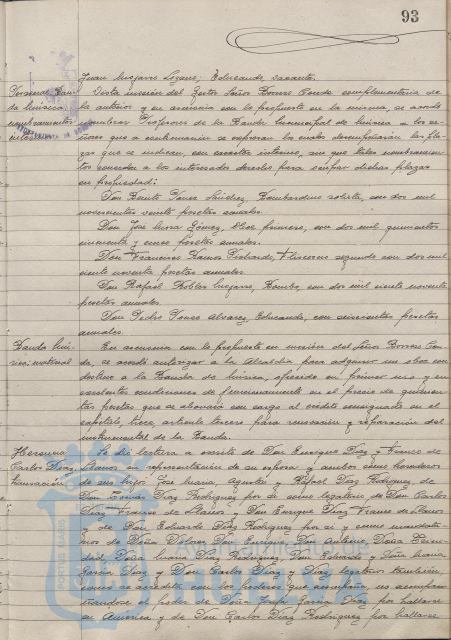 93
Juan Mojarro Lozano, Educando, vacante.
Personal Ban- Vista moción del Gestor Señor Borrero Conde complementaria de
da música. la anterior y en armonía con lo propuesto en la misma, se acordó
nombramientos nombrar Profesores de la Banda Municipal de música a los se-
ñores que a continuación se expresan los cuales desempeñarán las pla-
zas que se indican, con carácter interino, sin que tales nombramien-
tos concedan a los interesados derechos para ocupar dichas plazas
en propiedad:
Don Ponce Sánchez, Bombardino solista, con dos mil
novecientas veinte pesetas anuales.
Don José Mora Gómez, primero, con dos mil quinientas
cincuenta y cinco pesetas anuales.
Don Francisco Ramos, Fliscorno segundo con dos mil
ciento noventa pesetas anuales.
Don Rafael Robles Mojarro, Bombo, con dos mil ciento noventa
pesetas anuales.
Don Pedro Ponce Alvarez, Educando, con pesetas
anuales.
Banda mú- En armonía con lo propuesto en moción del Señor Borrero Con-
sica: material de, se acordó autorizar a la Alcaldía para adquirir un oboe con
destino a la Banda de música, ofrecido en primer uso y en
excelentes condiciones de funcionamiento en el precio de quinien-
tas pesetas que se abonará con cargo al crédito consignado en el
capítulo, trece, artículo tercero para renovación y reparación del
instrumental de la Banda.
Herencia Se dió lectura a escrito de Don Enrique Díaz y Franco de
Carlos Díaz: Llanos en representación de su esposa y ambos como herederos
transacción de sus hijos José María, Agustín y Rafael Díaz Rodríguez, de
Don Tomás Díaz Rodríguez por sí como legatario de Don Carlos
Díaz Franco de Llanos, y Don Enrique Díaz Franco de Llanos
y de Don Eduardo Díaz Rodríguez por sí y como mandata-
rios de Doña Dolores, Don Enrique, Don Antonio, Doña
Doña María Díaz Rodríguez, Don Eduardo y Doña María
García Díaz y Don Carlos Díaz y Díaz legatario también,
como se acredita con los poderes que acompaña no acompa-
ñándose el poder de Doña García Díaz por hallarse
en América y de Don Carlos Díaz Rodríguez por hallarse